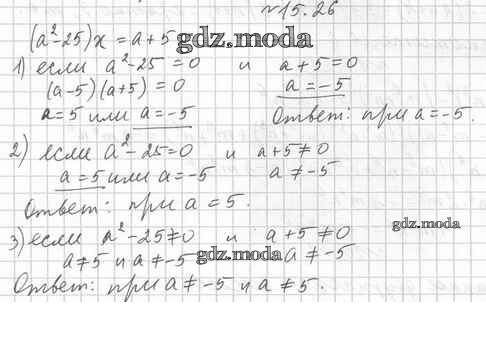 №15.26
(a²-25)x = a+5 gdz.moda
1) если a²-25=0 и a+5=0
(a-5)(a+5)=0 a=-5
a=5 или a=-5 Ответ: при a=-5.
2) если a²-25=0 и a+5≠0
a=5 или a=-5 a≠-5
Ответ: при a=5.
gdz.moda
3) если a²-25≠0 и a+5≠0
a≠5 и a≠-5 gdz.moda a≠-5
Ответ: при a≠-5 и a≠5.